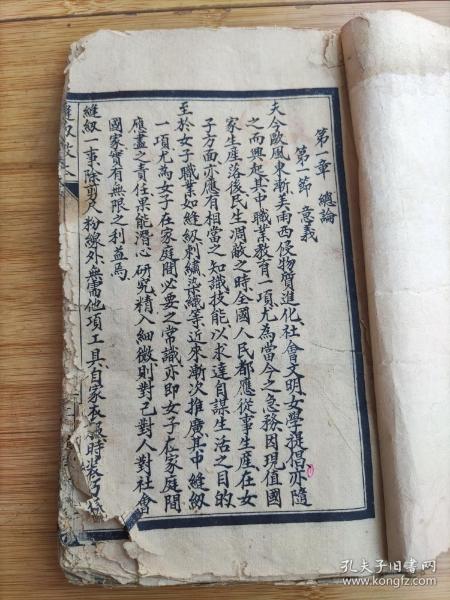 第一章　總論
第一節　意義
夫今歐風東漸美雨西侵物質進化社會文明女學提倡亦隨
之而興起其中職業教育一項尤為當今之急務因現值國
家生產落後民生凋蔽之時全國人民都應從事生產在女
子方面亦應有相當之知識技能以求達自謀生活之目的
至於女子職業如縫紉刺繡染織等近來漸次推廣其中縫紉
一項尤為女子在家庭間必要之常識亦即女子在家庭間
應盡之責任果能潛心研究精入細微則對己對人對社會
國家實有無限之利益焉
縫紉一事除剪尺粉線外無需他項工具自家衣服時裝
孔夫子旧书网
www.kongfz.com